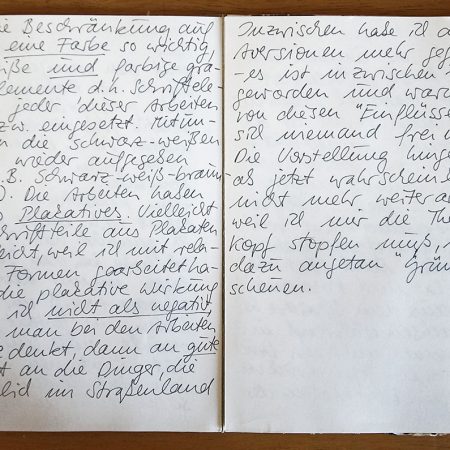 ie Beschränkung auf
eine Farbe so wichtig,
iße und farbige gra-
lemente d.h. Schriftele-
jeder dieser Arbeiten
zw. eingesetzt. Mitun-
n die schwarz-weißen
wieder aufgesehen
. B. schwarz-weiß-braun-
). Die Arbeiten haben
Plakatives. Vielleicht
chriftteile aus Plakaten
eicht, weil ich mit rela-
Formen gearbeitet ha-
die plakative Wirkung
ich nicht als negativ,
man bei den Arbeiten
e denkt, dann an gute
t an die Dinger, die
lid im Straßenland
Inzwischen habe ich a
Aversionen mehr geg
- es ist inzwischen
geworden und waru
von diesen "Einflüsse
sich niemand frei n
Die Vorstellung hinge
ab jetzt wahrscheinl
nicht mehr weiter a
weil ich mir die The
Kopf stopfen muß,
dazu angetan "Grün
scheinen.